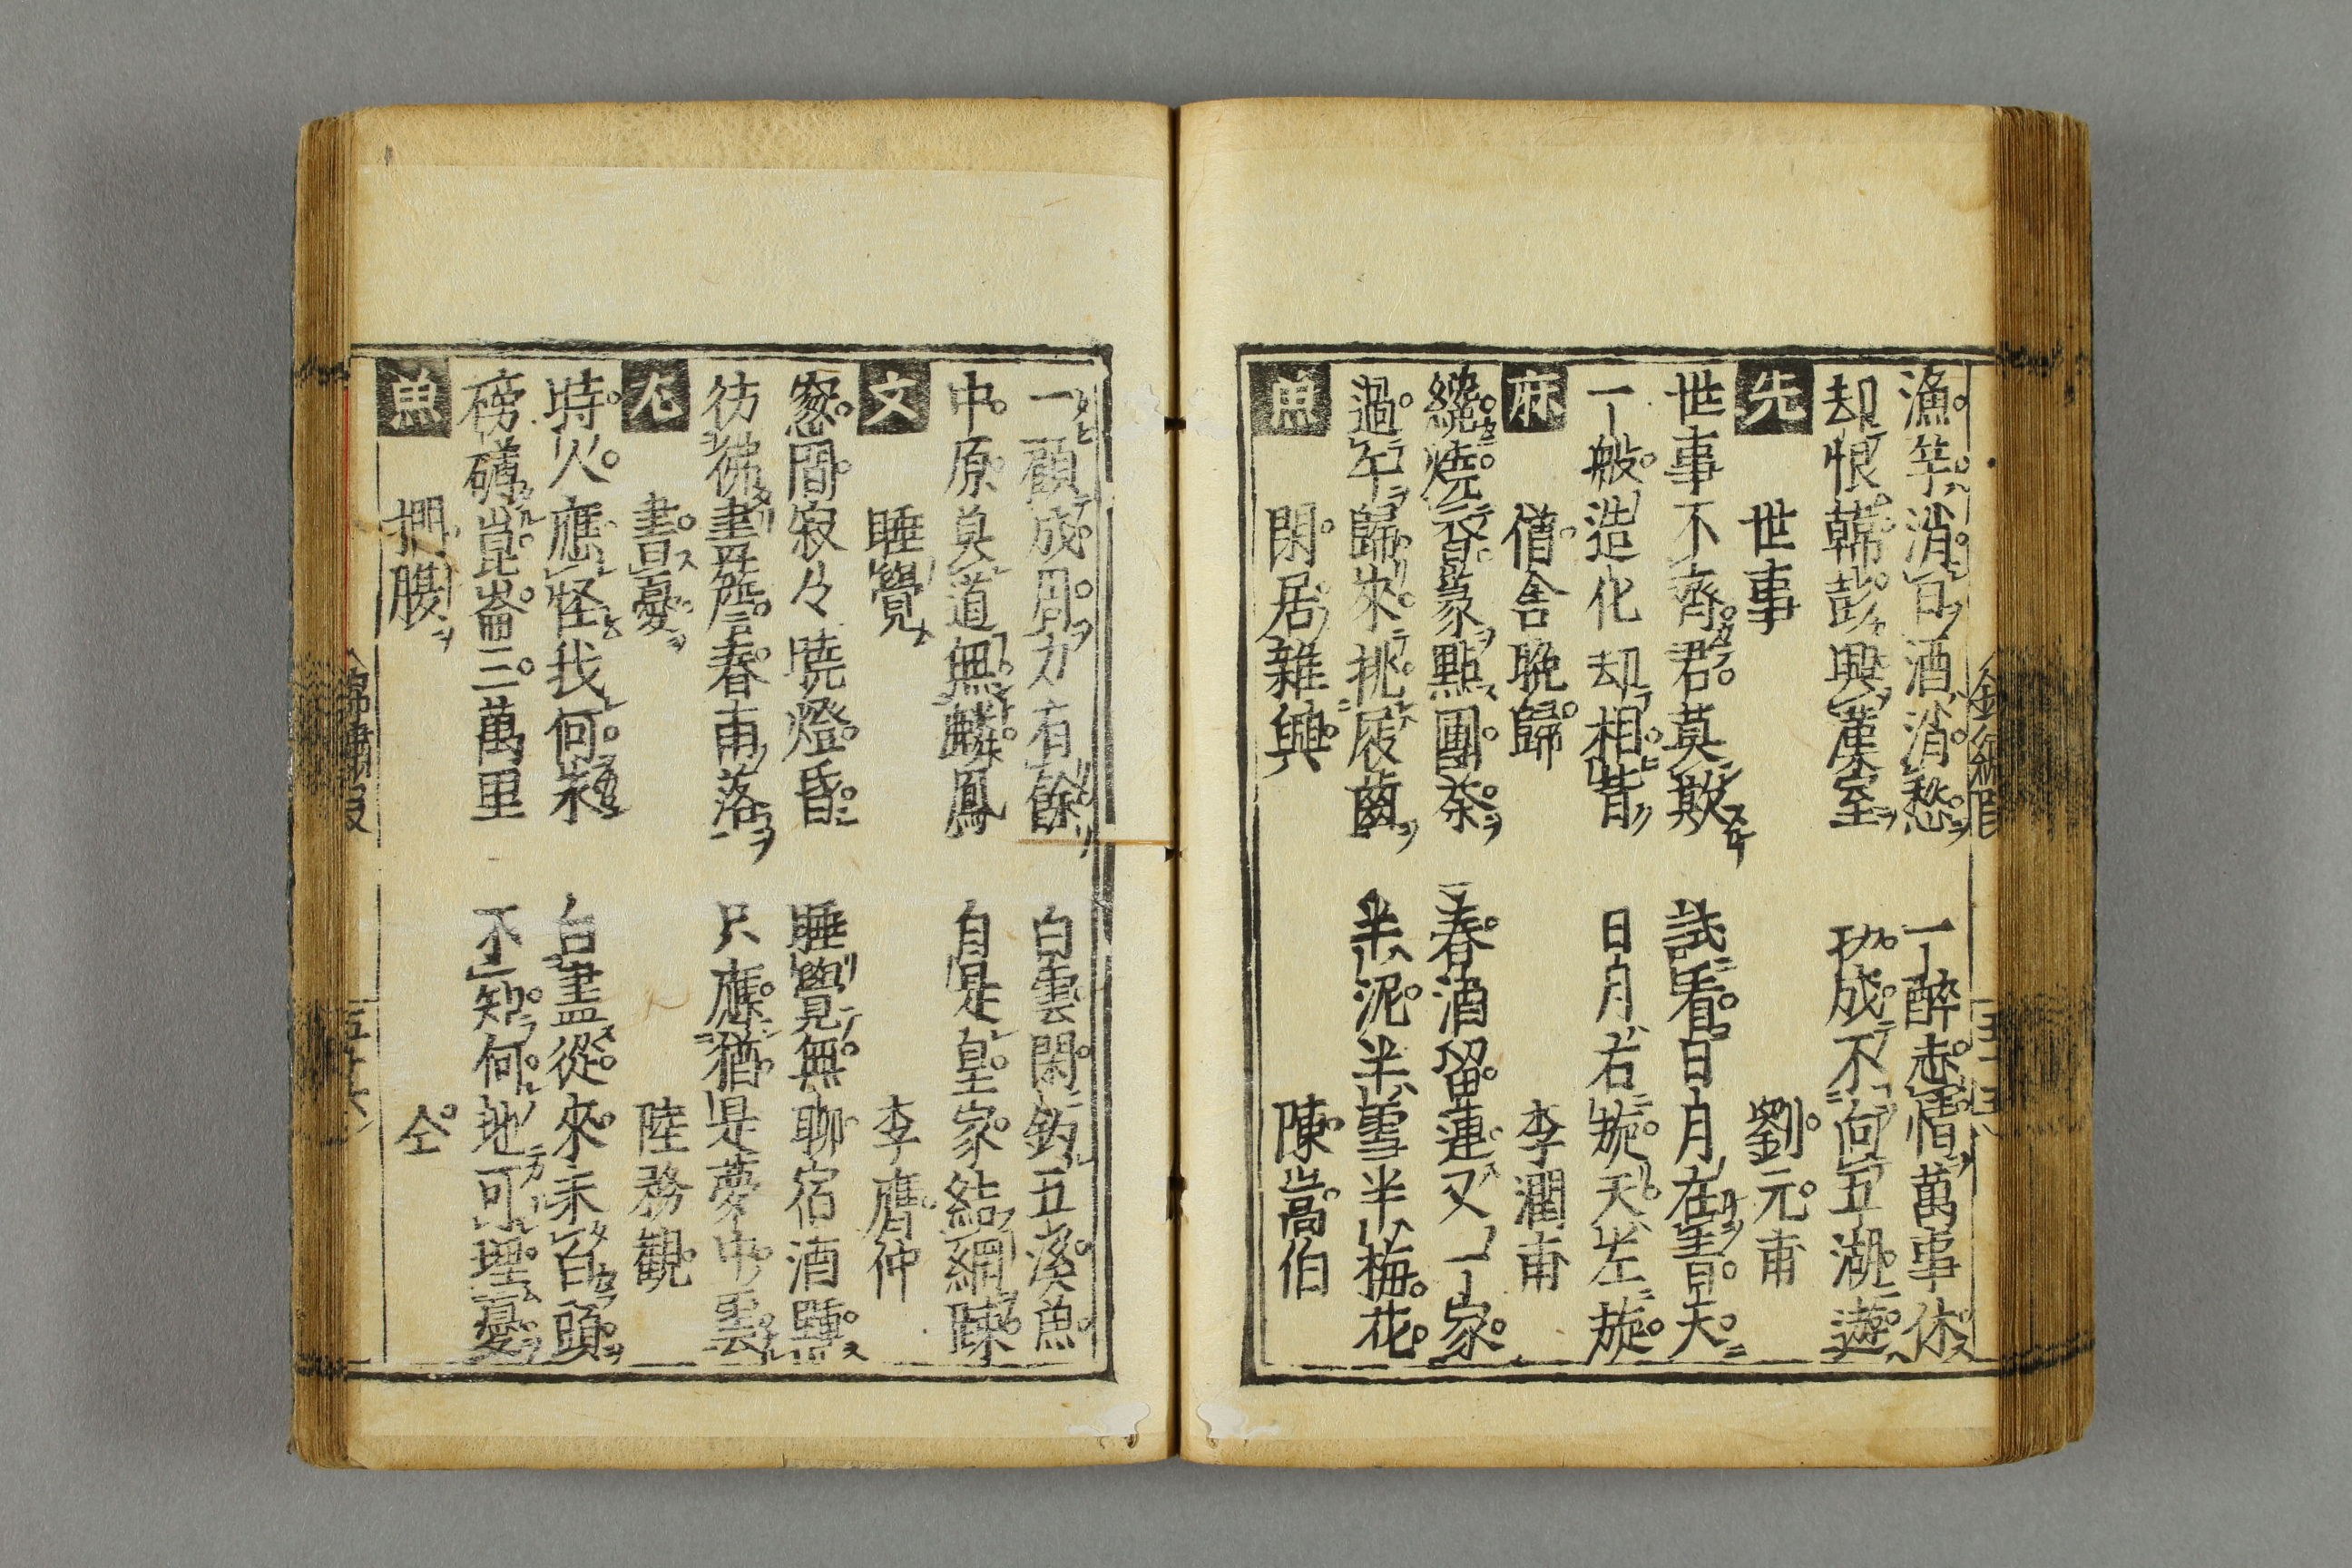 漁竿消日酒消愁　一醉忘情萬事休
却恨韓彭興漢室　功成不向五湖遊
先　世事　劉元甫
世事不齊君莫欺　試看日月在青天
一般造化却相背　日月右旋天左旋
麻　僧舍晚歸　李潤甫
纔燒香篆點團茶　春酒留連又一家
過午歸來挑屐齒　半泥半雪半梅花
魚　閑居雜興　陳嵩伯
一顧成周力有餘　白雲閑釣五溪魚
中原莫道無麟鳳　自是皇家結網踈
文　睡覺　李膺仲
窓間寂々曉燈昏　睡覺無聊宿酒醺
彷彿畫屏春雨落　只應猶是夢中雲
尤　書憂　陸務觀
時人應怪我何求　白盡從來未白頭
磅礴崑崙三萬里　不知何地可埋憂
魚　捫腹　仝